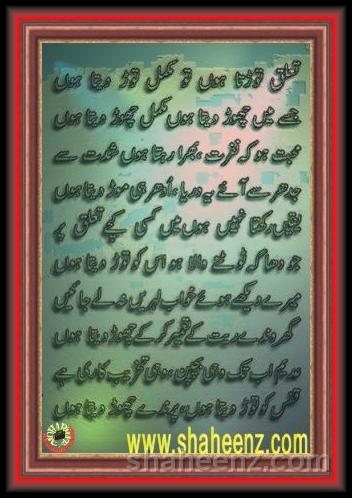 تعلق توڑتا ہوں تو مکمل توڑ دیتا ہوں
جسے میں چھوڑ دیتا ہوں مکمل چھوڑ دیتا ہوں
محبت ہو کہ نفرت ، بھرا رہتا ہوں شدت سے
جدھر سے آئے یہ دریا ، اُدھر ہی موڑ دیتا ہوں
یقیں رکھتا نہیں ہوں میں کسی کچے تعلق پر
جو دھاگہ ٹوٹنے والا ہو اس کو توڑ دیتا ہوں
میرے دیکھے ہوئے خواب لہریں نہ لے جائیں
گھروندے ریت کے تعمیر کر کے چھوڑ دیتا ہوں
عدیم اب تک وہی بچپن ، وہی تخریب کاری ہے
قفس کو توڑ دیتا ہوں ، پرندے چھوڑ دیتا ہوں
www.shaheenz.com
shaheenz.com